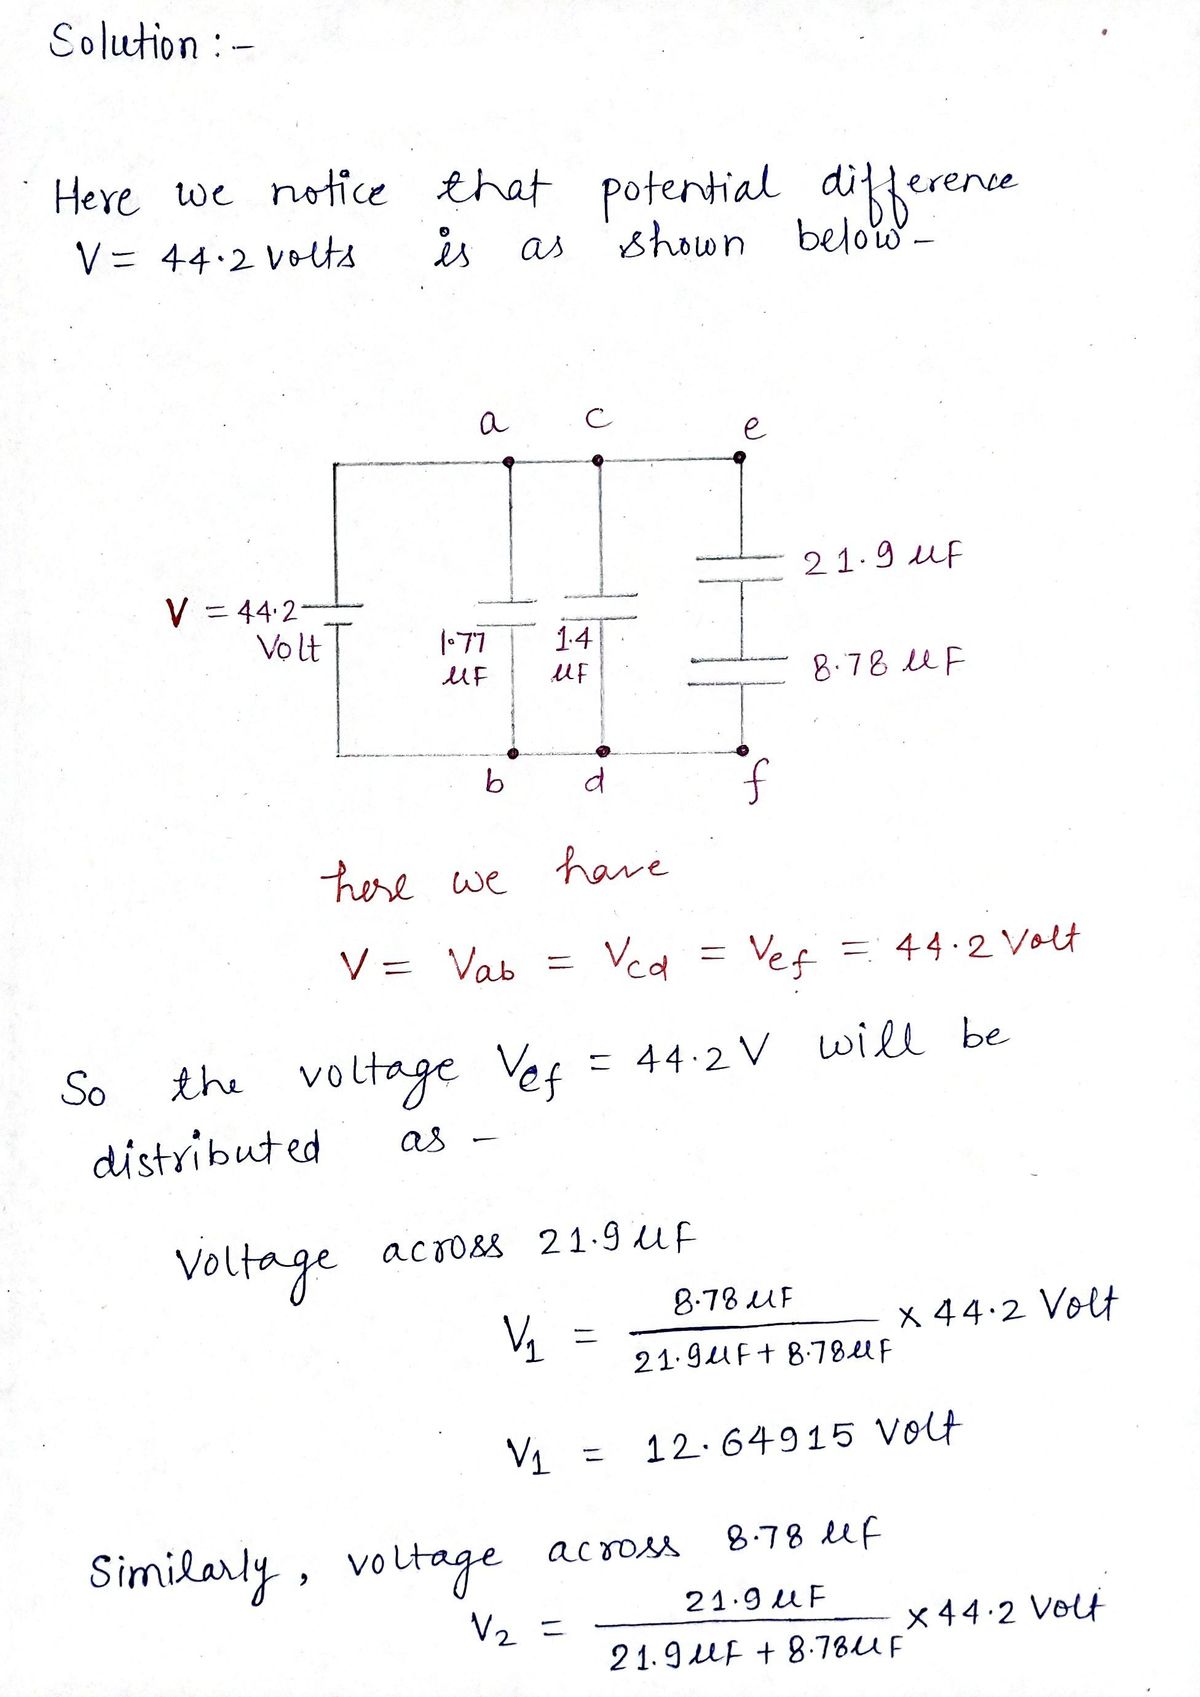 Solution :-
Here we notice that potential difference
V = 44.2 volts is as shown below -
a c e
21.9 μF
V = 44.2
Volt
1.77
μF
1.4
μF
8.78 μF
b d f
here we have
V = Vab = Vcd = Vef = 44.2 Volt
So the voltage Vef = 44.2 V will be
distributed as -
Voltage across 21.9 μF
V1 = 8.78 μF / 21.9 μF + 8.78 μF × 44.2 Volt
V1 = 12.64915 Volt
Similarly, voltage across 8.78 μF
V2 = 21.9 μF / 21.9 μF + 8.78 μF × 44.2 Volt